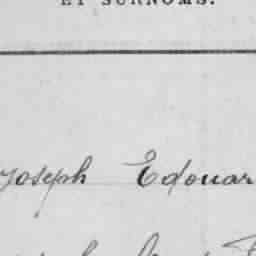 ET SURNOMS.
Joseph Edouar